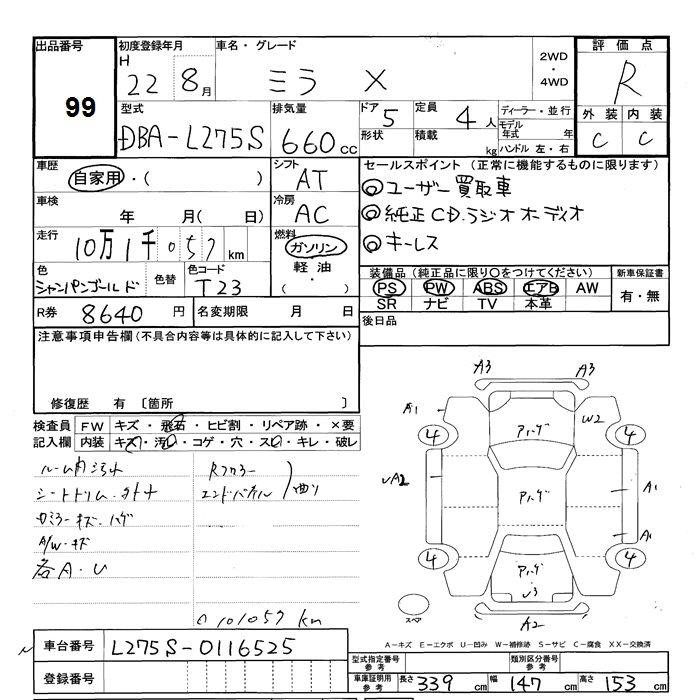 出品番号 初度登録年月 車名・グレード 2WD・4WD 評価点
99 H 22 8月 ミラ X R
型式 排気量 ドア 5 定員 4人 ディーラー・並行 外装 内装
DBA-L275S 660cc 形状 積載 kg モデル年式 年 C C
ハンドル 左・右
車歴 自家用・( ) シフト AT セールスポイント (正常に機能するものに限ります)
◎ユーザー買取車
車検 年 月(日) 冷房 AC ◎純正CD.ラジオオーディオ
走行 10万1千057km 燃料 ガソリン ◎キーレス
軽油・( )
色 シャンパンゴールド 色替 色コード T23 装備品 (純正品に限り○をつけてください) 新車保証書
PS PW ABS エアB AW 有・無
SR ナビ TV 本革
R券 8640円 名変期限 月 日 後日品
注意事項申告欄(不具合内容等は具体的に記入して下さい)
修復歴 有 〔箇所 〕
検査員 FW キズ・飛石・ヒビ割・リペア跡・×要
記入欄 内装 キズ・汚レ・コゲ・穴・スレ・キレ・破レ
ルーム内
A/W・キズ
各A・U
エンドパネル
101057 km
A3 A3
A1 W2
4 アハゲ 4
A2 アハゲ A1
A1
4 アハゲ 4
U3
スペア A2
A-キズ E-エクボ U-凹み W-補修跡 S-サビ C-腐食 XX-交換済
車台番号 L275S-0116525
登録番号
型式指定番号 参考 類別区分番号 参考
車庫証明用 参考 長さ 339cm 幅 147cm 高さ 153cm